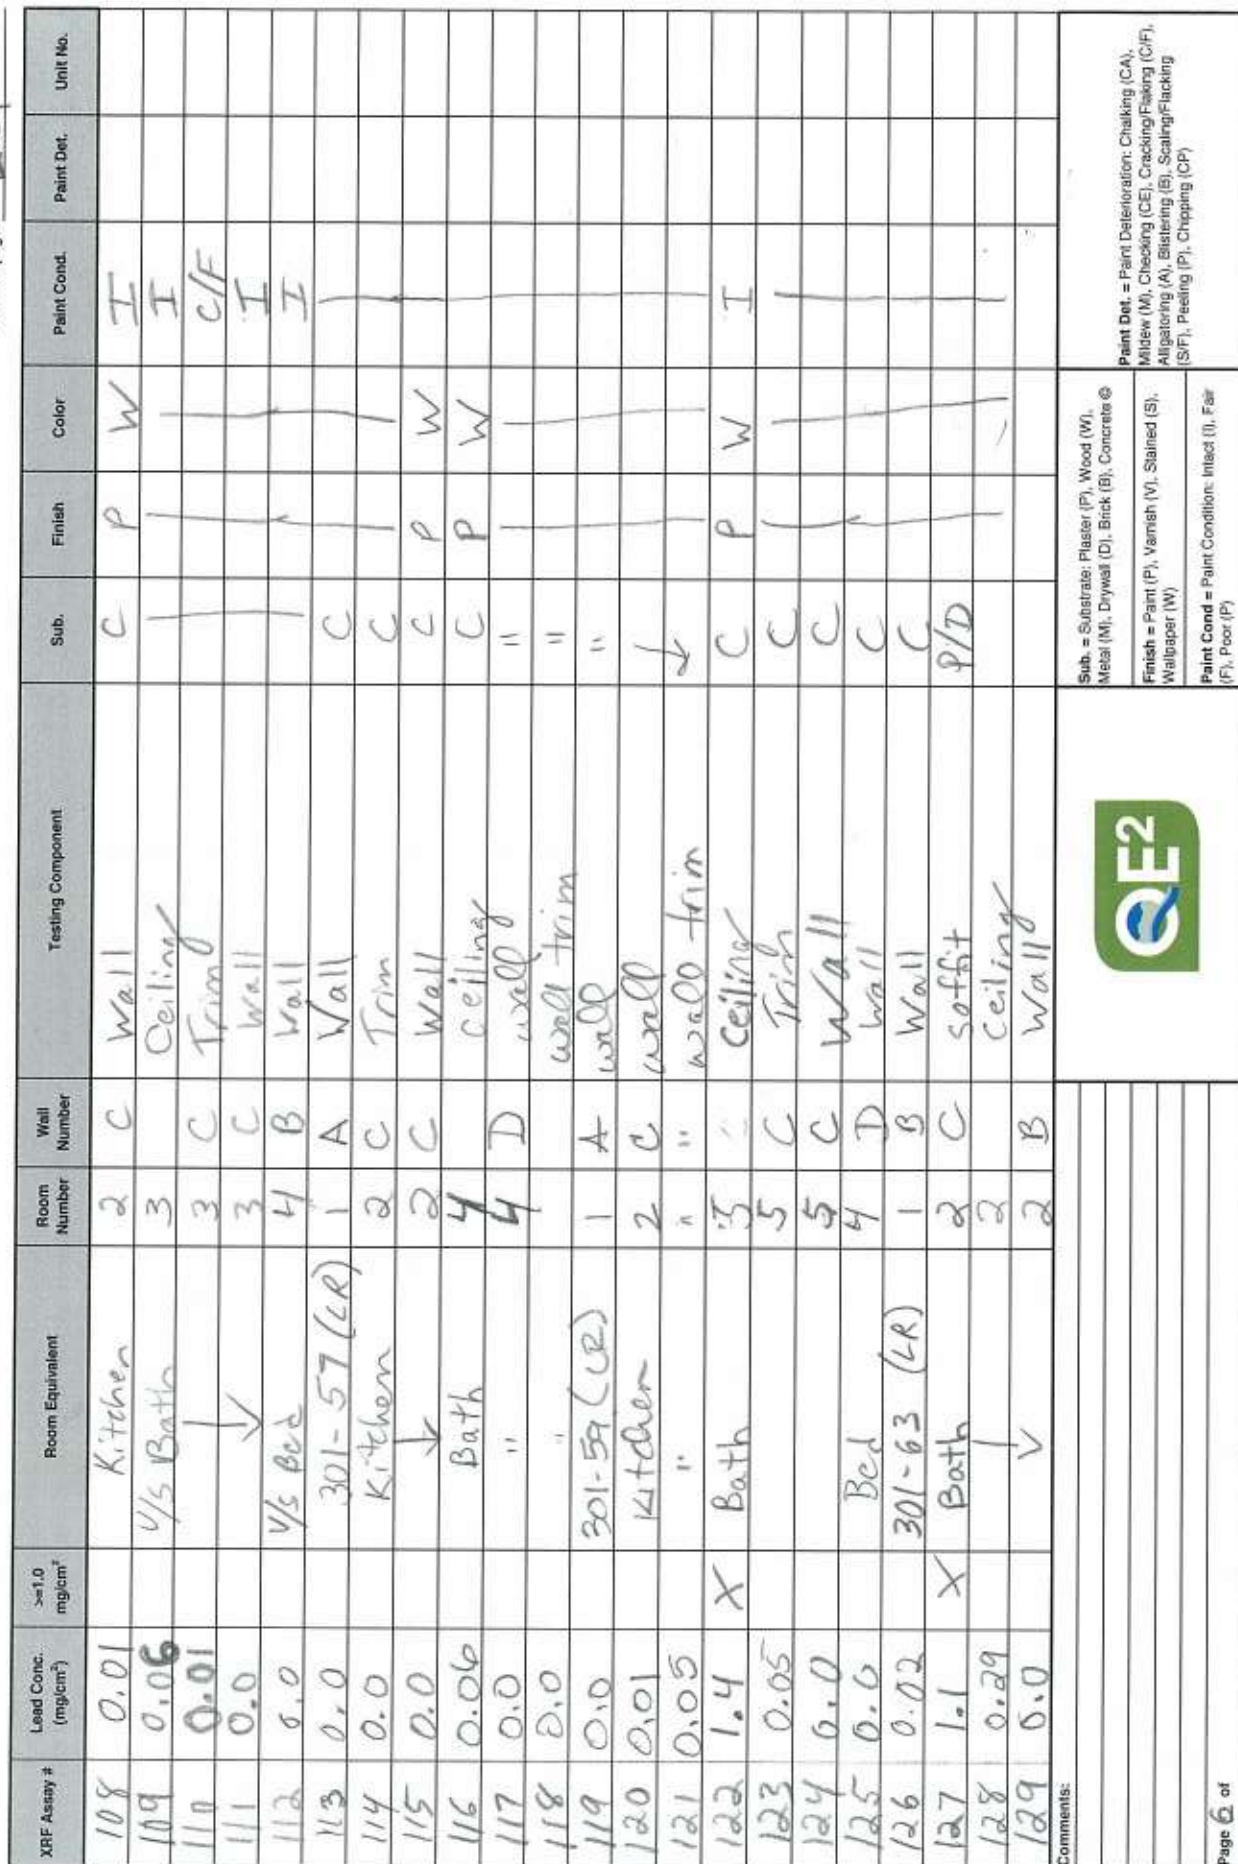 XRF Assay # Lead Conc. (mg/cm²) >=1.0 mg/cm² Room Equivalent Room Number Wall Number Testing Component Sub. Finish Color Paint Cond. Paint Det. Unit No.
108 0.01 Kitchen 2 C Wall C P W I
109 0.06 V/S Bath 3 Ceiling I
110 0.01 3 C Trim C/F
111 0.0 ↓ 3 C Wall I
112 0.0 V/S Bed 4 B Wall I
113 0.0 301-57 (LR) 1 A Wall C
114 0.0 Kitchen 2 C Trim C
115 0.0 ↓ 2 C Wall C P W
116 0.06 Bath 4 ceiling C P W
117 0.0 " 4 D wall "
118 0.0 " wall trim "
119 0.0 301-59 (LR) 1 A wall "
120 0.01 Kitchen 2 C wall
121 0.05 " " " wall trim ↓
122 1.4 X Bath 5 ceiling C P W I
123 0.05 5 C Trim C
124 0.0 5 C Wall C
125 0.0 Bed 4 D Wall C
126 0.02 301-63 (LR) 1 B Wall C
127 1.1 X Bath 2 C Soffit P/D
128 0.29 2 ceiling
129 0.0 ↓ 2 B Wall
Comments:
Page 6 of
QE²
Sub. = Substrate: Plaster (P), Wood (W),
Metal (M), Drywall (D), Brick (B), Concrete ©
Finish = Paint (P), Varnish (V), Stained (S),
Wallpaper (W)
Paint Cond = Paint Condition: Intact (I), Fair
(F), Poor (P)
Paint Det. = Paint Deterioration: Chalking (CA),
Mildew (M), Checking (CE), Cracking/Flaking (C/F),
Alligatoring (A), Blistering (B), Scaling/Flacking
(S/F), Peeling (P), Chipping (CP)